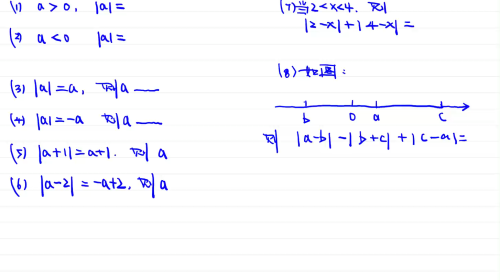 (1) a > 0, |a| =
(2) a < 0 |a| =
(3) |a| = a, 则 a ___
(4) |a| = -a 则 a ___
(5) |a+1| = a+1. 则 a
(6) |a-2| = -a+2, 则 a
(7) 当 2 < x < 4. 则
|2-x| + |4-x| =
(8) 如图:
b 0 a c
则 |a-b| - |b+c| + |c-a| =